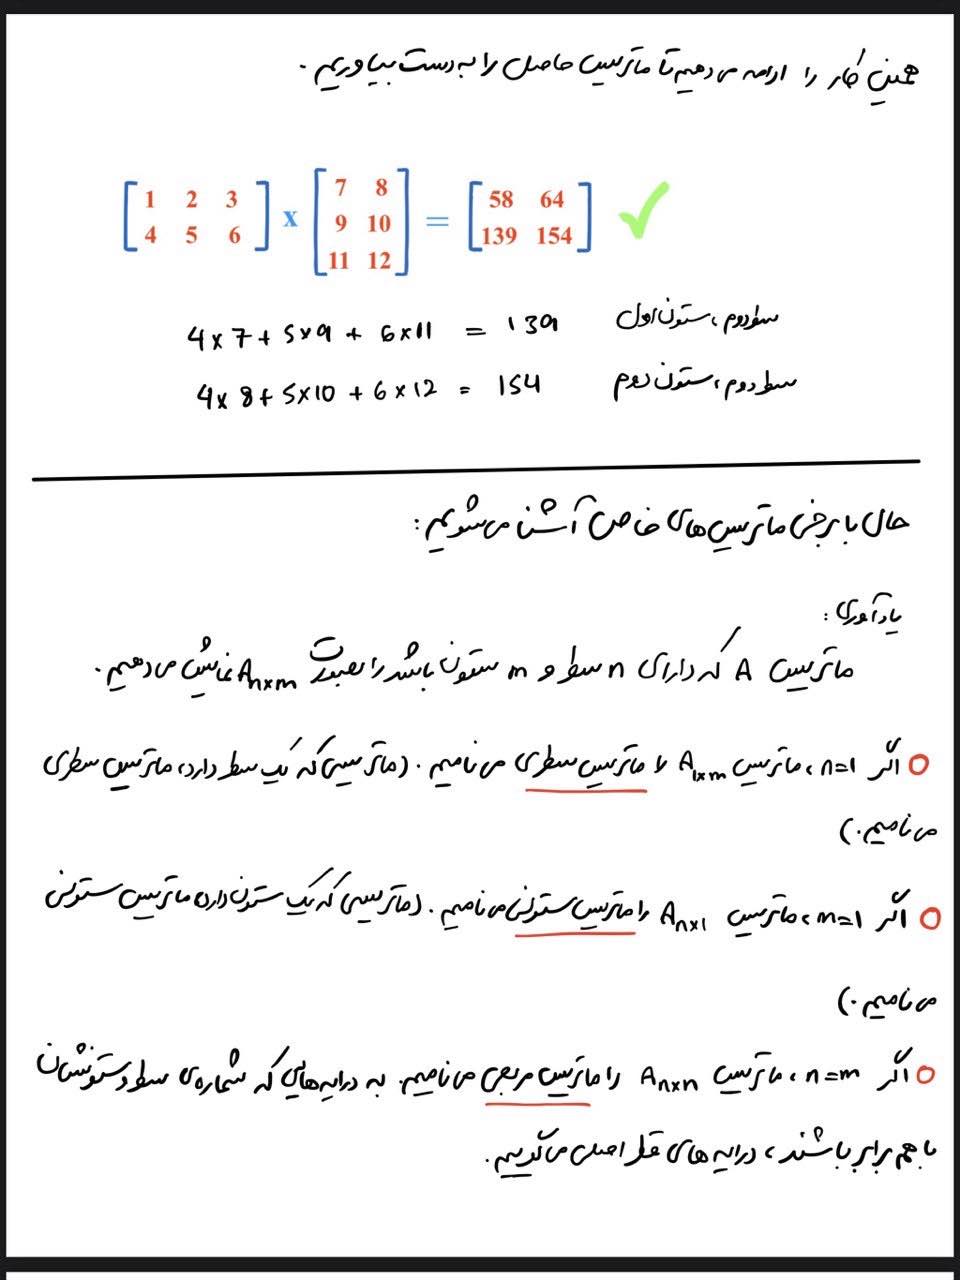 همین کار را ادامه می‌دهیم تا ماتریس حاصل را به دست بیاوریم.
[1 2 3
4 5 6] x [7 8
9 10
11 12] = [58 64
139 154] ✓
4 × 7 + 5 × 9 + 6 × 11 = 139 سطر دوم، ستون اول
4 × 8 + 5 × 10 + 6 × 12 = 154 سطر دوم، ستون دوم
حال با برخی ماتریس‌های خاص آشنا می‌شویم:
یادآوری:
ماتریس A که دارای n سطر و m ستون باشد را بصورت Aₙₓₘ نمایش می‌دهیم.
اگر n=1، ماتریس A₁ₓₘ را ماتریس سطری می‌نامیم. (ماتریسی که یک سطر دارد، ماتریس سطری
می‌نامیم.)
اگر m=1، ماتریس Aₙₓ₁ را ماتریس ستونی می‌نامیم. (ماتریسی که یک ستون دارد، ماتریس ستونی
می‌نامیم.)
اگر n=m، ماتریس Aₙₓₙ را ماتریس مربعی می‌نامیم. به درایه‌هایی که شماره‌ی سطر و ستونشان
با هم برابر باشند، درایه‌های قطر اصلی می‌گوییم.